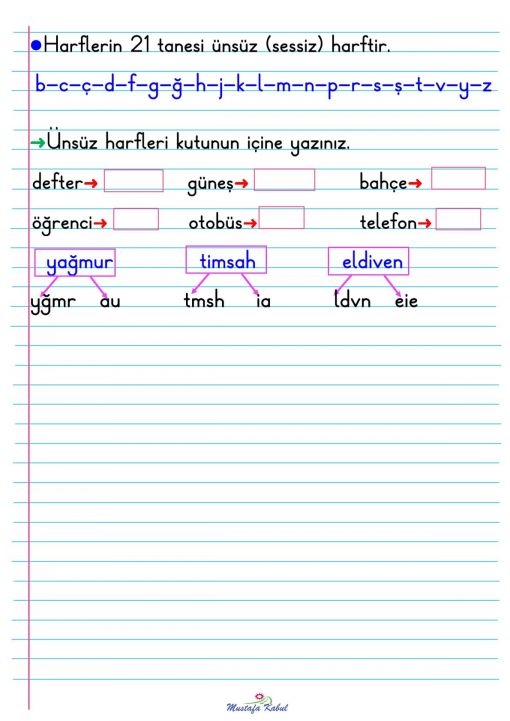 ●Harflerin 21 tanesi ünsüz (sessiz) harftir.
b-c-ç-d-f-g-ğ-h-j-k-l-m-n-p-r-s-ş-t-v-y-z
→Ünsüz harfleri kutunun içine yazınız.
defter→ güneş→ bahçe→
öğrenci→ otobüs→ telefon→
yağmur timsah eldiven
yğmr au tmsh ia ldvn eie
Mustafa Kabul